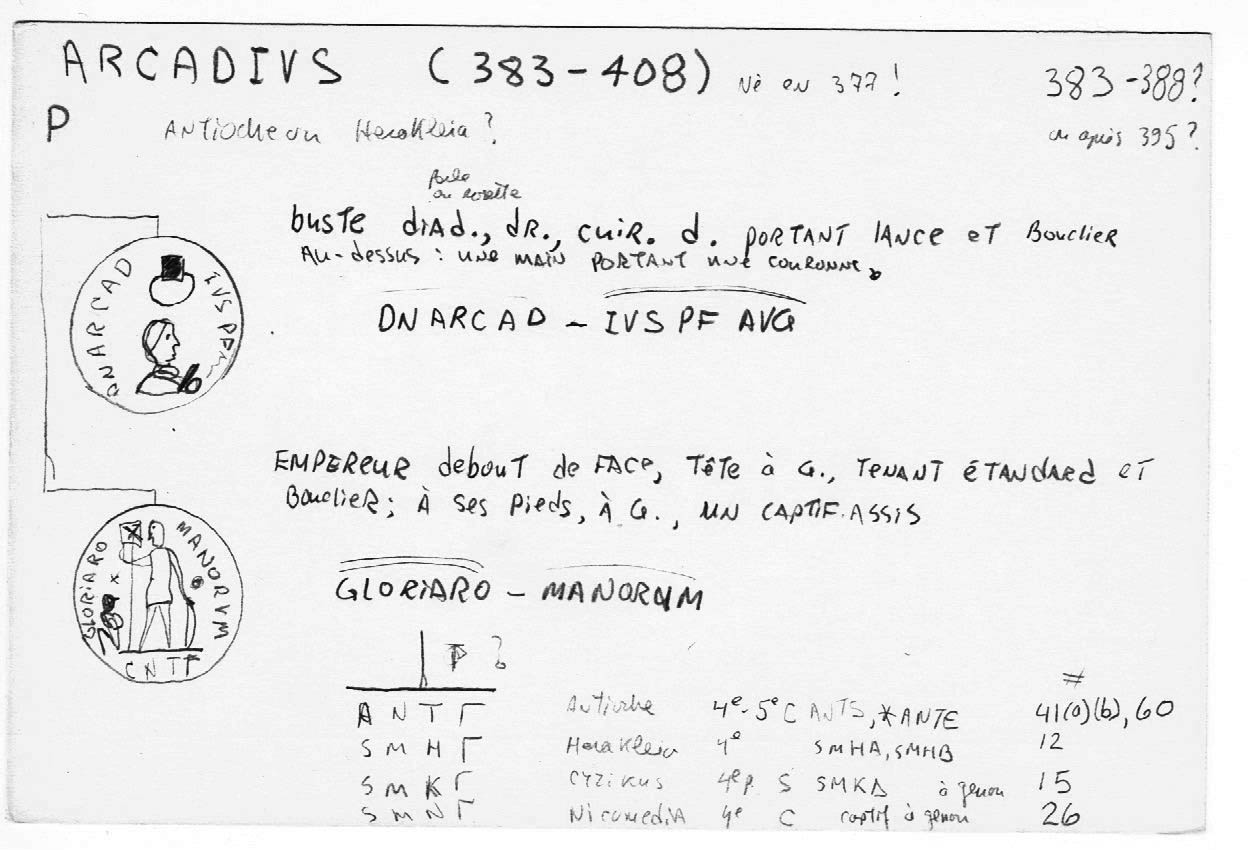 ARCADIVS (383-408) Né en 377 ! 383-388?
P Antioche ou Herakleia ? ou après 395 ?
perle
ou rosette
buste diad., dr., cuir. d. portant lance et Bouclier
Au-dessus : une main portant une couronne.
DNARCAD IVSPF
DN ARCAD - IVS PF AVG
Empereur debout de face, tête à G., tenant étandard et
Bouclier ; à ses pieds, à G., un captif assis
GLORIARO MANORVM
CNTΓ
GLORIARO - MANORUM
P ?
#
ANTΓ Antioche 4e-5e C ANTS, *ANTE 41(a)(b), 60
SMHΓ Herakleia 4e SMHA, SMHB 12
SMKΓ Cyzikus 4e p. S SMKΔ à genou 15
SMNΓ Nicomedia 4e C captif à genou 26